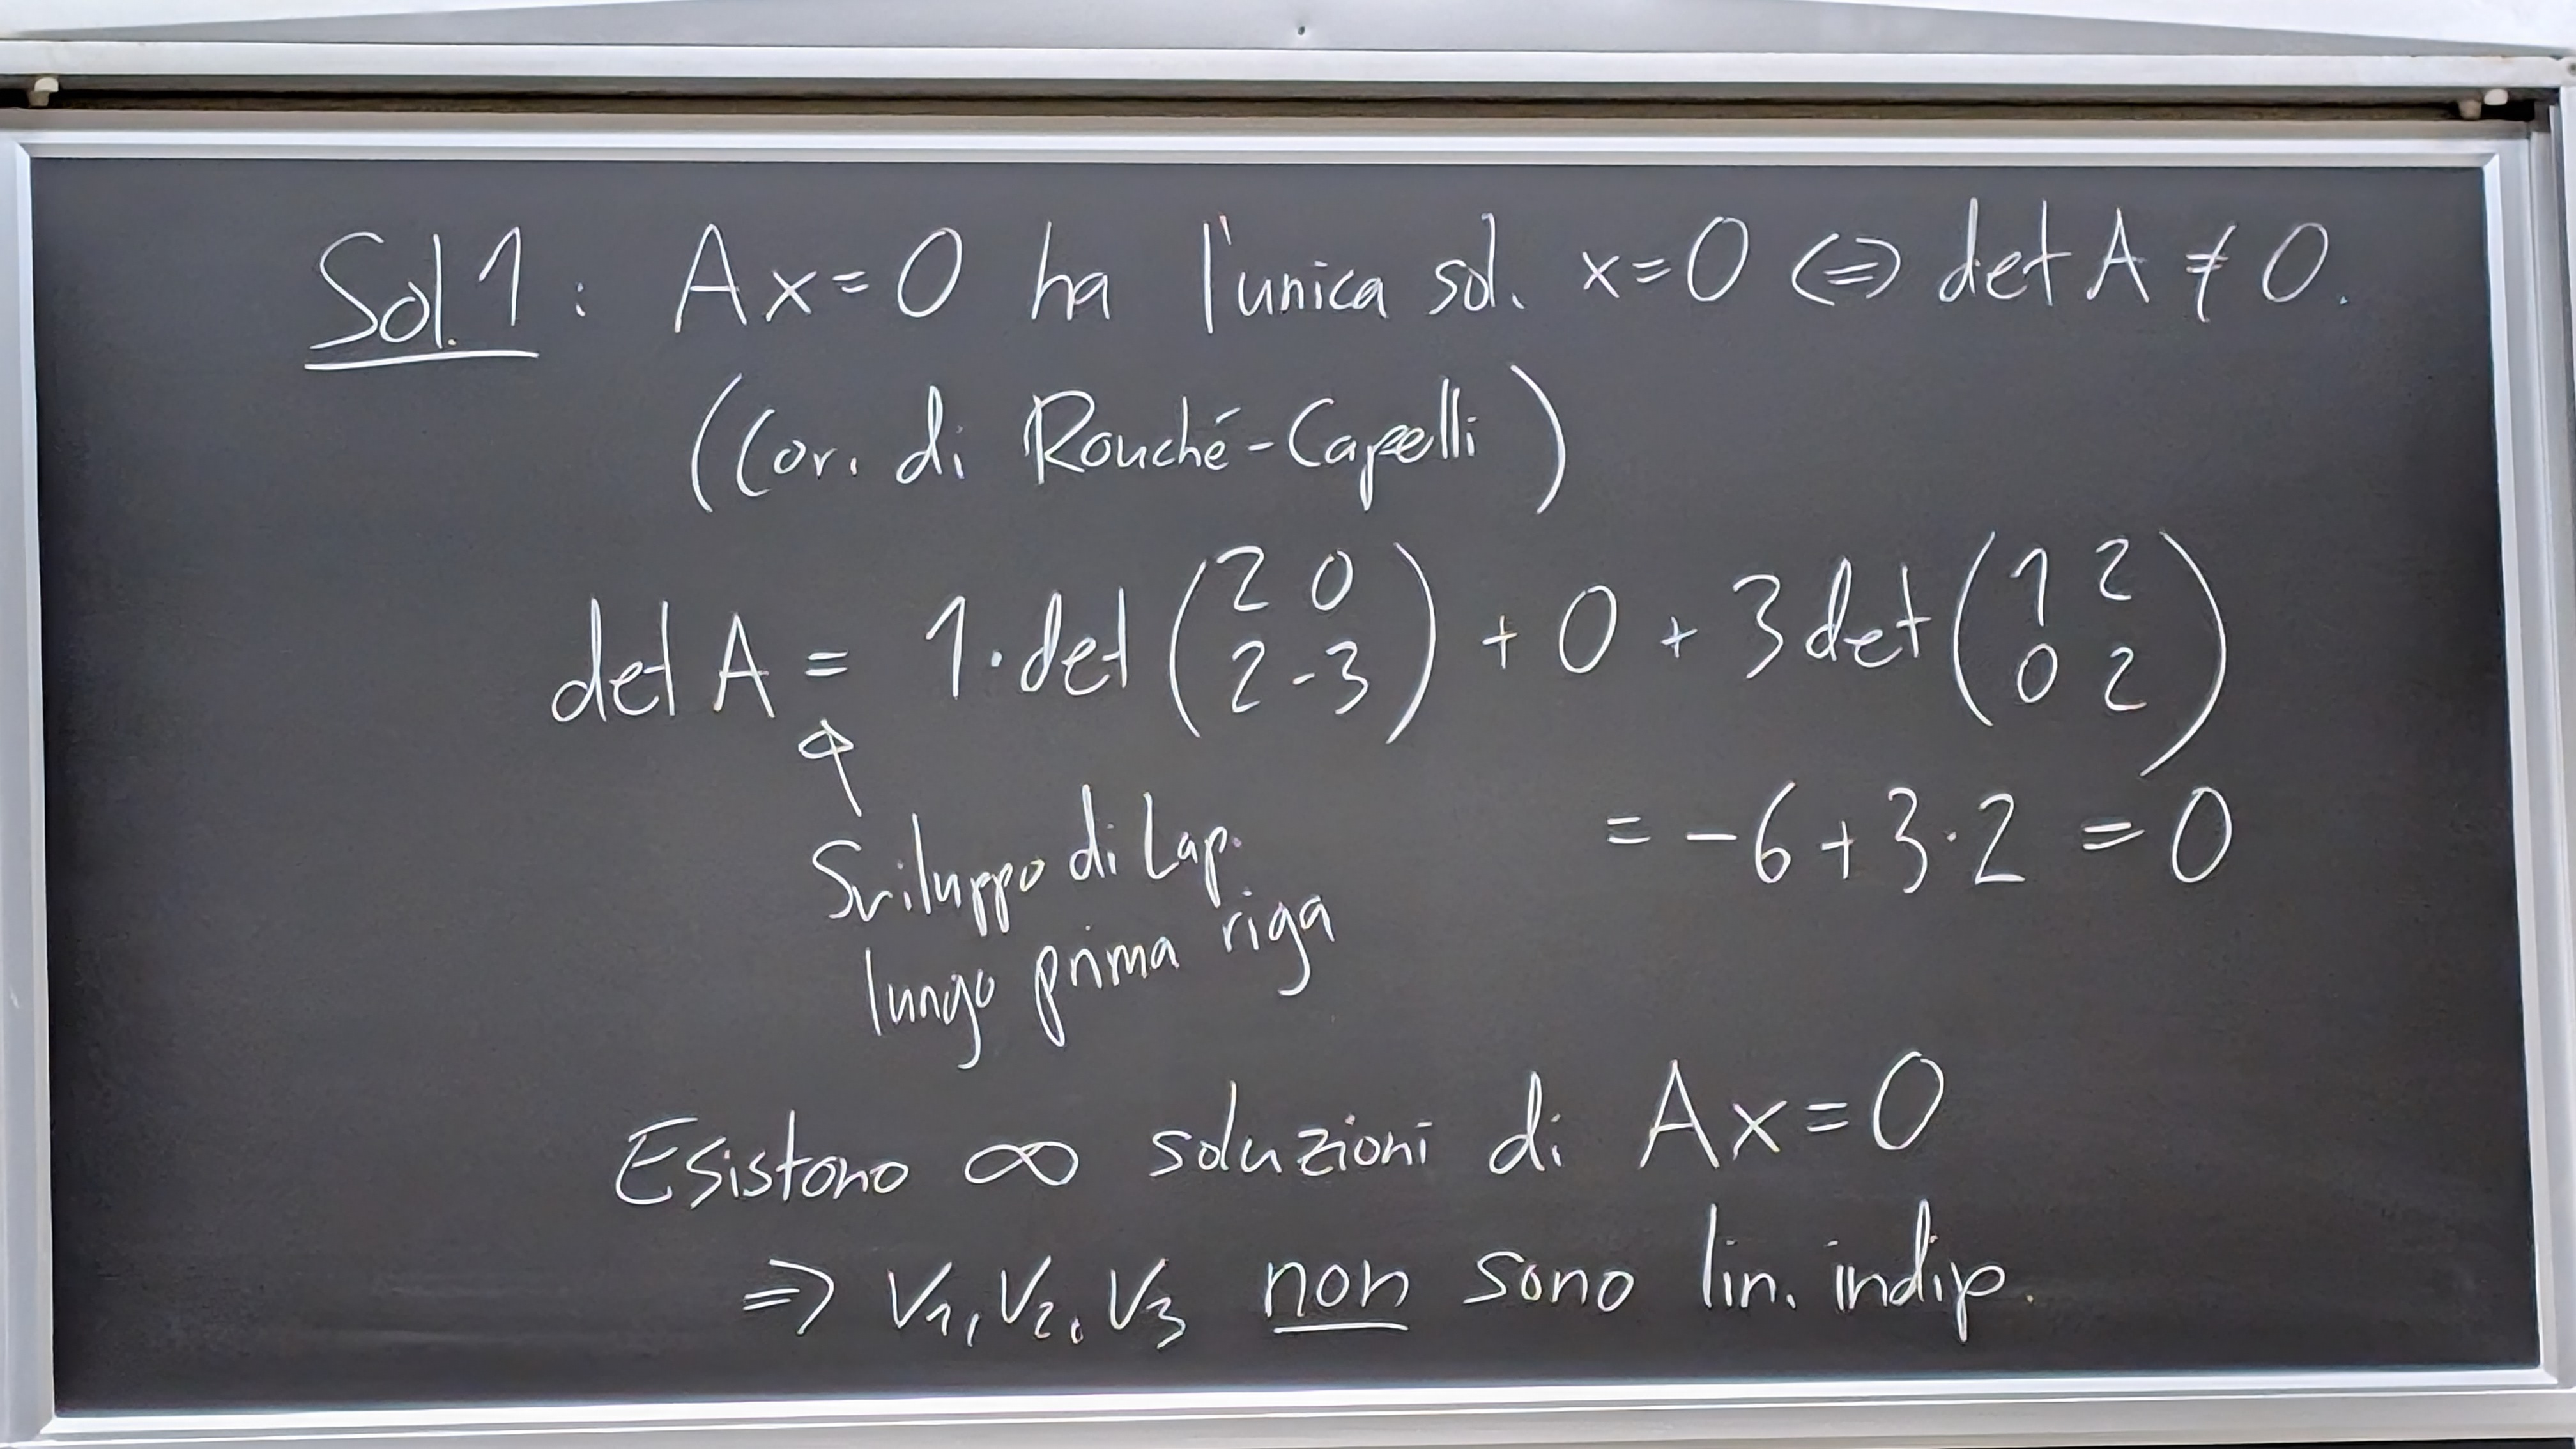 Sol. 1 : Ax = 0 ha l'unica sol. x = 0 <=> det A ≠ 0.
(Cor. di Rouché-Capelli)
det A = 1 · det (2 0 2 -3) + 0 + 3 det (1 2 0 2)
= -6 + 3 · 2 = 0
Sviluppo di Lap.
lungo prima riga
Esistono ∞ soluzioni di Ax = 0
=> V1, V2, V3 non sono lin. indip.